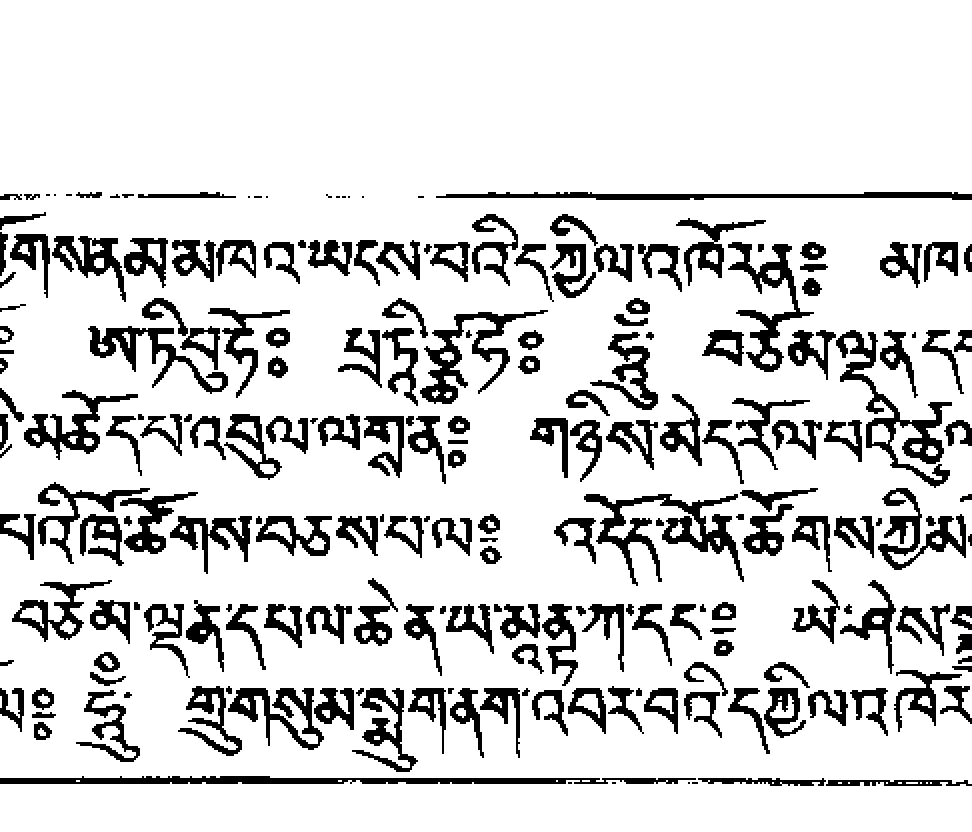 ཕྱོགས་ནམ་མམཁའ་ཡངས་པའི་དཀྱིལ་འཁོར་ན༔ མཁའ
༔ ཨ་ཏི་པུ་ཧོ༔ པྲ་ཏཱི་ཙྪ་ཧོ༔ ཧཱུྃ༔ བཅོམ་ལྡན་དཔ
མཆོད་པ་འབུལ་ལགྲན༔ གཉིས་མེད་རོལ་པའི་ཚུལ
པའི་ཁྲོ་ཚོགས་བཅས་པ་ལ༔ འདོད་ཡོན་ཚོགས་ཀྱི་མ
བཅོམ་ལྡན་དཔལ་ཆེན་ཡ་མཱནྟ་ཀ་དང་༔ ཡེ་ཤེས་སྨ
ལ༔ ཧཱུྃ༔ གྲུ་གསུམ་སྨུག་ནག་འབར་བའི་དཀྱིལ་འཁོར